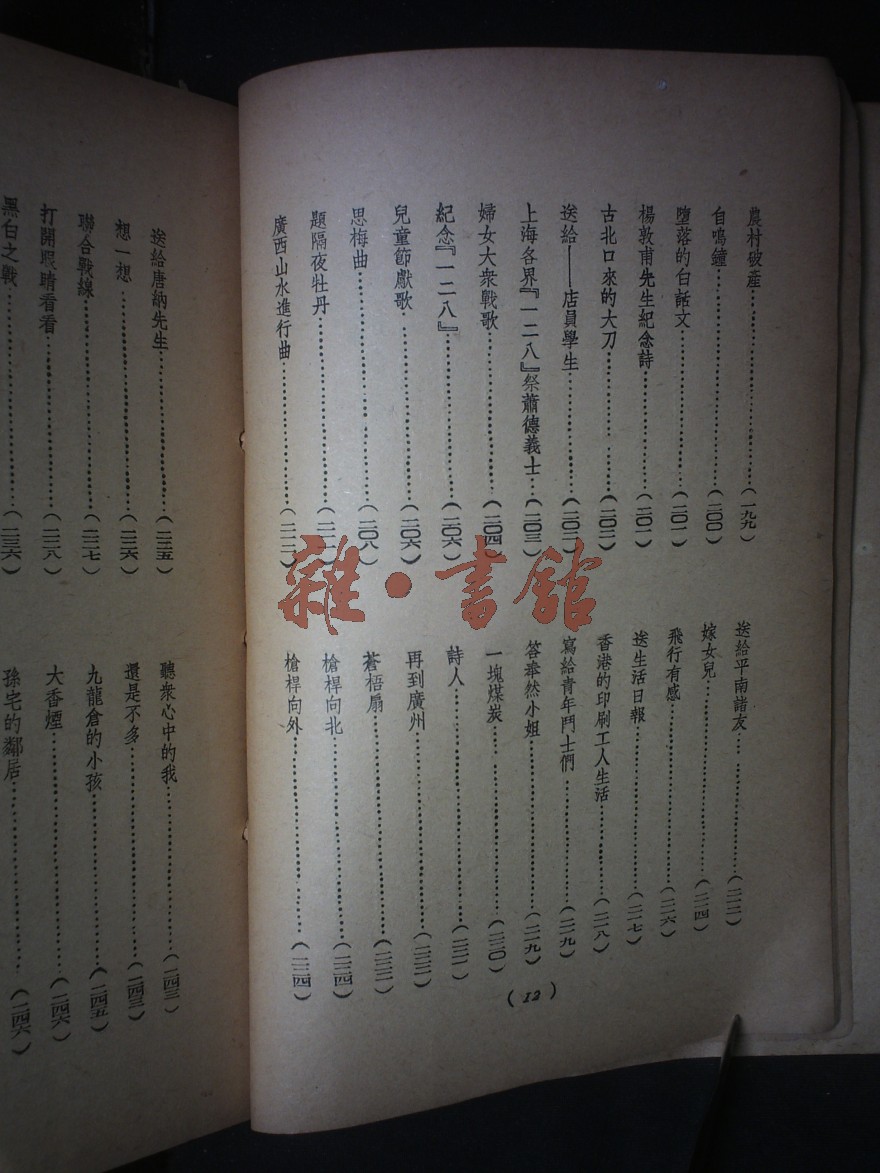 農村破產……………………(一九九)
自鳴鐘……………………(二〇〇)
墮落的白話文……………………(二〇一)
楊敦甫先生紀念詩……………………(二〇一)
古北口來的大刀……………………(二〇二)
送給——店員學生……………………(二〇二)
上海各界『一二八』祭蕭德義士…(二〇三)
婦女大衆戰歌……………………(二〇四)
紀念『一二八』……………………(二〇六)
兒童節獻歌……………………(二〇六)
思梅曲……………………(二〇八)
題隔夜牡丹……………………
廣西山水進行曲……………………
送給平南諸友……………………
嫁女兒……………………(二一四)
飛行有感……………………(二一六)
送生活日報……………………(二一七)
香港的印刷工人生活……………………(二一八)
寫給青年鬥士們……………………(二一九)
答奉然小姐……………………(二一九)
一塊煤炭……………………(二二〇)
詩人……………………
再到廣州……………………
蒼梧扇……………………
槍桿向北……………………(二二四)
槍桿向外……………………(二二四)
(12)
送給唐納先生……………………(二二五)
想一想……………………(二二六)
聯合戰線……………………(二二七)
打開眼睛看看……………………(二二八)
黑白之戰……………………(二三六)
聽衆心中的我……………………(二四三)
還是不多……………………(二四三)
九龍倉的小孩……………………(二四五)
大香煙……………………(二四六)
孫宅的鄰居……………………(二四六)
雜·書館